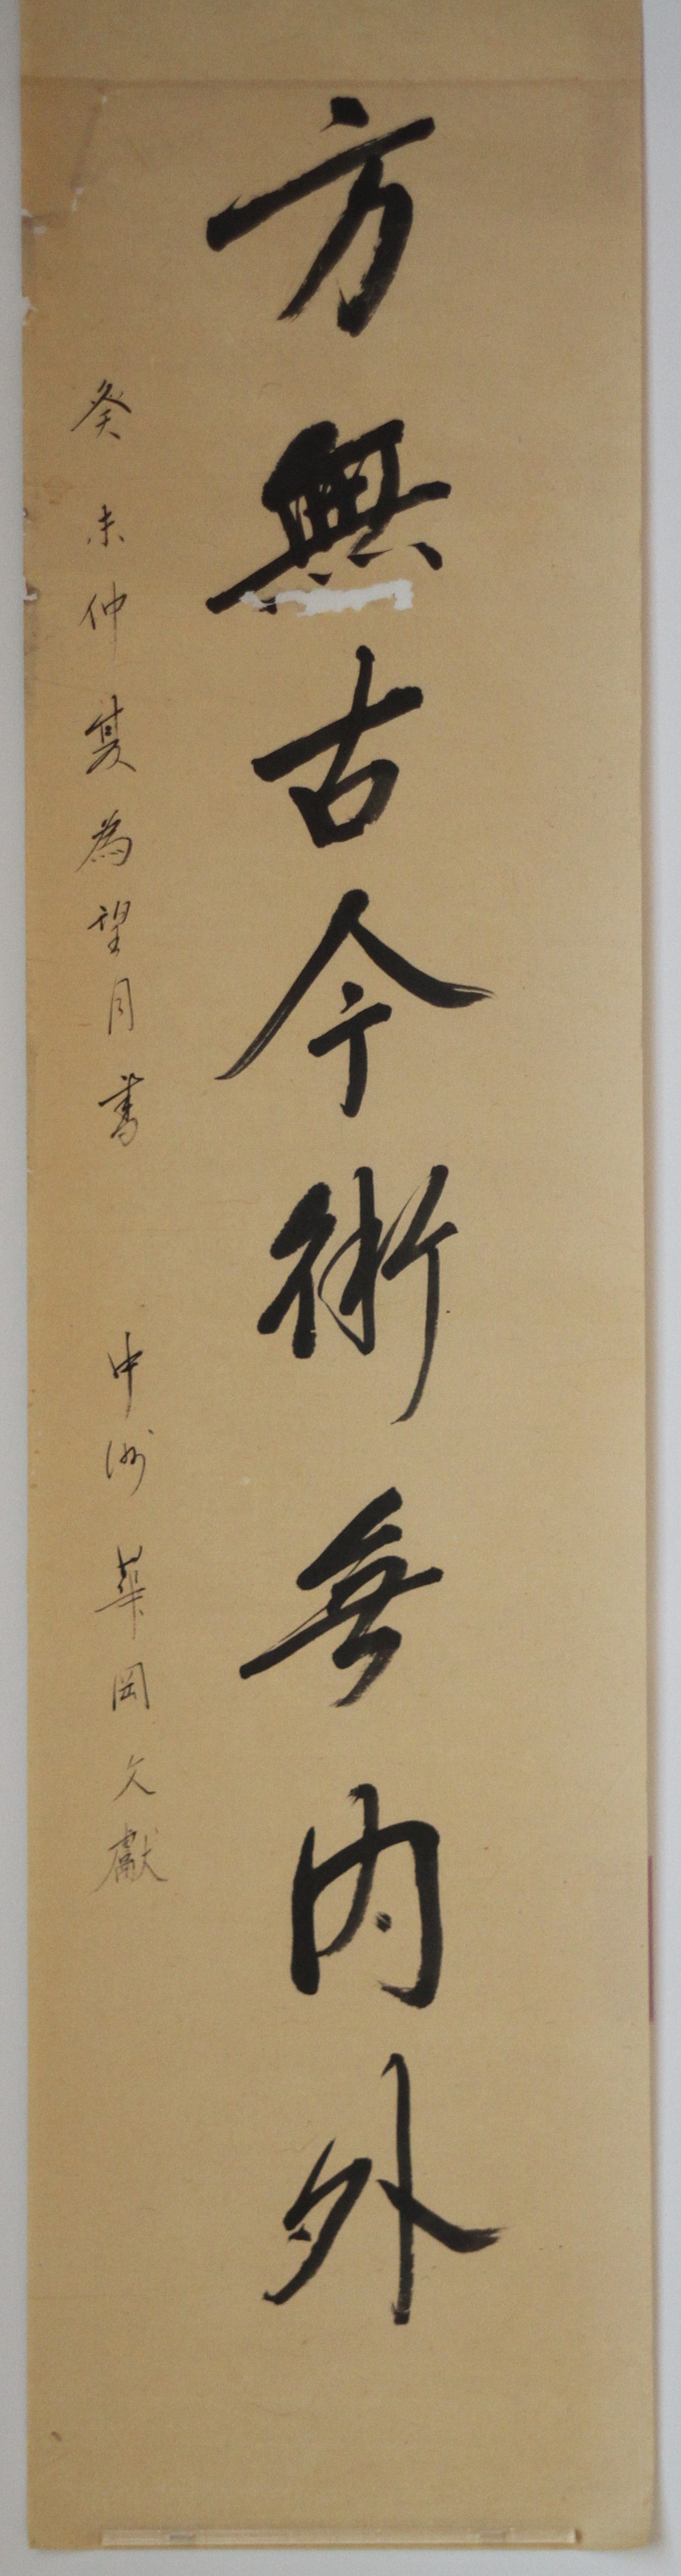 方無古今術無内外
癸未仲夏為望月書 中洲華岡文獻